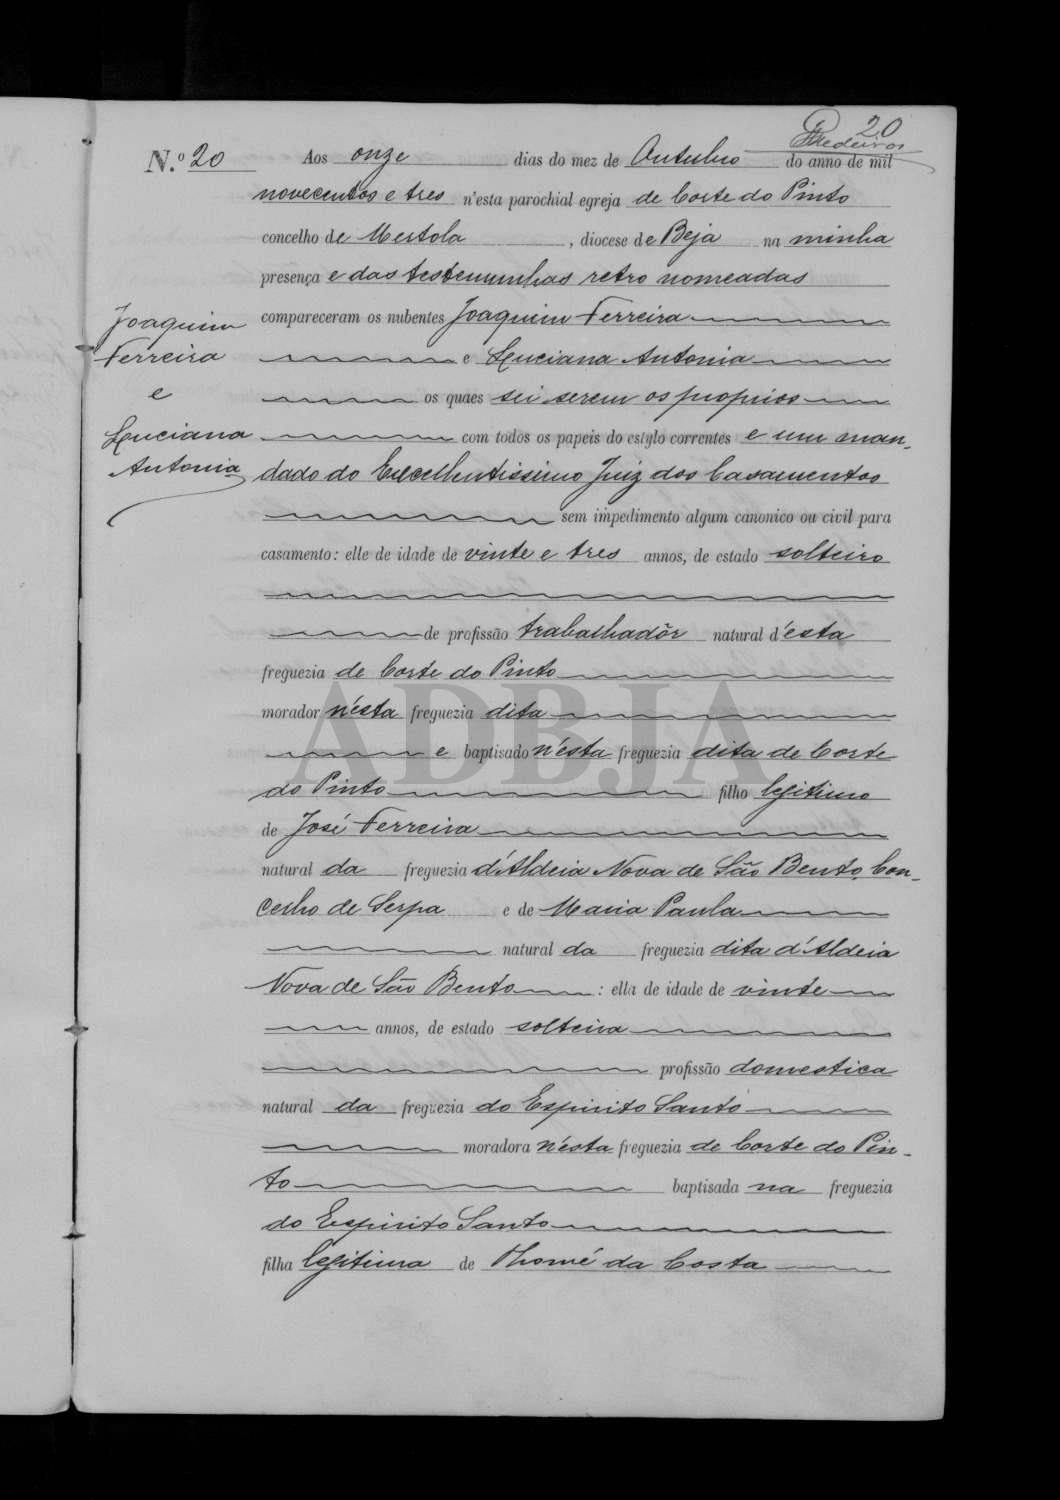 20
Medeiros
N.º 20
Aos onze dias do mez de Outubro do anno de mil
novecentos e tres n'esta parochial egreja de Corte do Pinto
concelho de Mertola, diocese de Beja na minha
presença e das testemunhas retro nomeadas
compareceram os nubentes Joaquim Ferreira
e Luciana Antonia
os quaes sei serem os proprios
com todos os papeis do estylo correntes e um man-
dado do Excellentissimo Juiz dos Casamentos
sem impedimento algum canonico ou civil para
casamento: elle de idade de vinte e tres annos, de estado solteiro
de profissão trabalhadôr natural d'esta
freguezia de Corte do Pinto
morador n'ésta freguezia dita
e baptisado n'ésta freguezia dita de Corte
do Pinto filho legitimo
de José Ferreira
natural da freguezia d'Aldeia Nova de São Bento, Con-
celho de Serpa e de Maria Paula
natural da freguezia dita d'Aldeia
Nova de São Bento : ella de idade de vinte
annos, de estado solteira
profissão domestica
natural da freguezia do Espirito Santo
moradora n'ésta freguezia de Corte do Pin-
to baptisada na freguezia
do Espirito Santo
filha legitima de Thomé da Costa
Joaquim
Ferreira
e
Luciana
Antonia
ADBJA